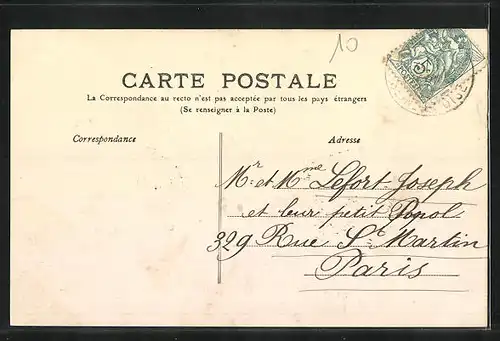 10
5
CARTE POSTALE
La Correspondance au recto n'est pas acceptée par tous les pays étrangers
(Se renseigner à la Poste)
Correspondance
Adresse
Mr et Mme Lefort-Joseph
et leur petit Popol
329 Rue St Martin
Paris